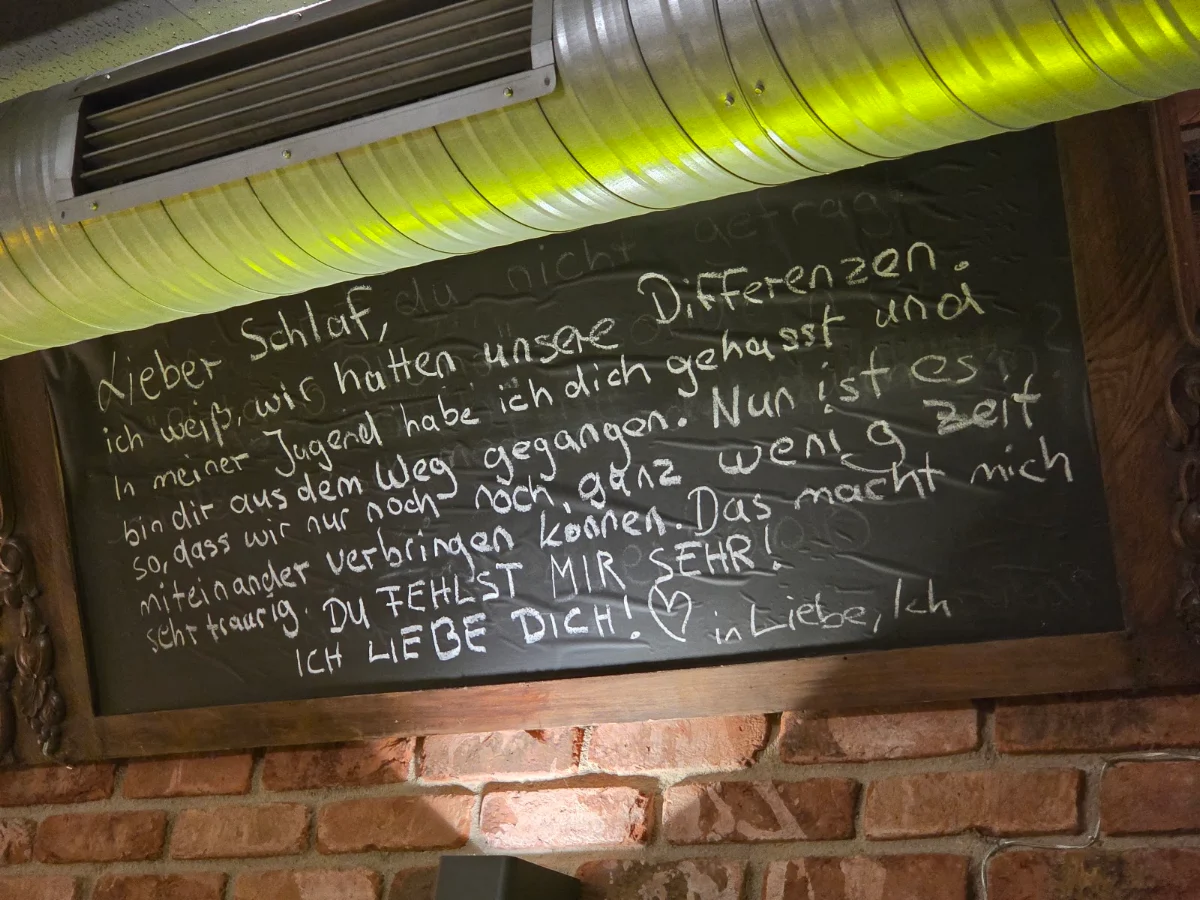 du nicht getragt
Lieber Schlaf,
ich weiß, wir hatten unsere Differenzen.
In meiner Jugend habe ich dich gehasst und
bin dir aus dem Weg gegangen. Nun ist es
so, dass wir nur noch noch ganz wenig zeit
miteinander verbringen können. Das macht mich
sehr traurig. DU FEHLST MIR SEHR!
ICH LIEBE DICH! ♡ in Liebe, Ich